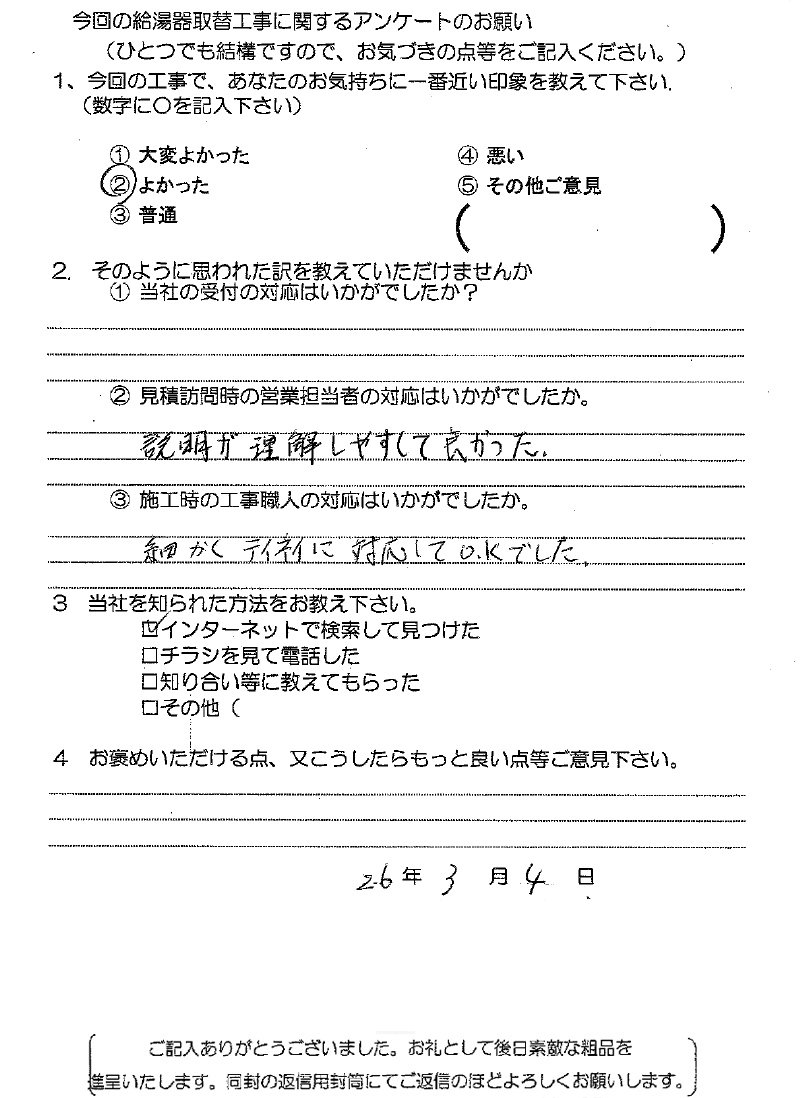 今回の給湯器取替工事に関するアンケートのお願い
（ひとつでも結構ですので、お気づきの点等をご記入ください。）
1、今回の工事で、あなたのお気持ちに一番近い印象を教えて下さい.
（数字に〇を記入下さい）
① 大変よかった ④ 悪い
② よかった ⑤ その他ご意見
③ 普通 （ ）
2. そのように思われた訳を教えていただけませんか
① 当社の受付の対応はいかがでしたか？
② 見積訪問時の営業担当者の対応はいかがでしたか。
説明が理解しやすくて良かった.
③ 施工時の工事職人の対応はいかがでしたか。
細かくテイネイに対応してO.Kでした.
3 当社を知られた方法をお教え下さい。
☑インターネットで検索して見つけた
□チラシを見て電話した
□知り合い等に教えてもらった
□その他（
4 お褒めいただける点、又こうしたらもっと良い点等ご意見下さい。
26年 3 月 4 日
ご記入ありがとうございました。お礼として後日素敵な粗品を
進呈いたします。同封の返信用封筒にてご返信のほどよろしくお願いします。